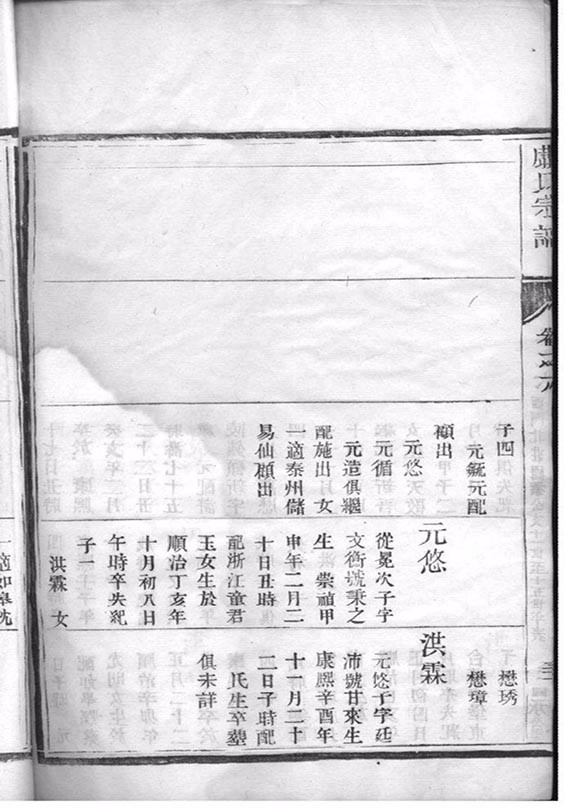 盧氏宗譜
卷之六
子四
元配
顧出
元悠
元循
元造俱繼
配施出 女
一適泰州儲
易仙顧出
元悠
從冕次子字
文衛號秉之
生 崇禎甲
申年二月二
十日丑時
配浙江童君
玉女生於
順治丁亥年
十月初八日
午時卒失紀
子一
洪霖 女
一適如皋冼
懋琇
懋璋
洪霖
元悠子字廷
沛號甘來生
康熙辛酉年
十一月二十
一日子時配
氏生卒塟
俱未詳